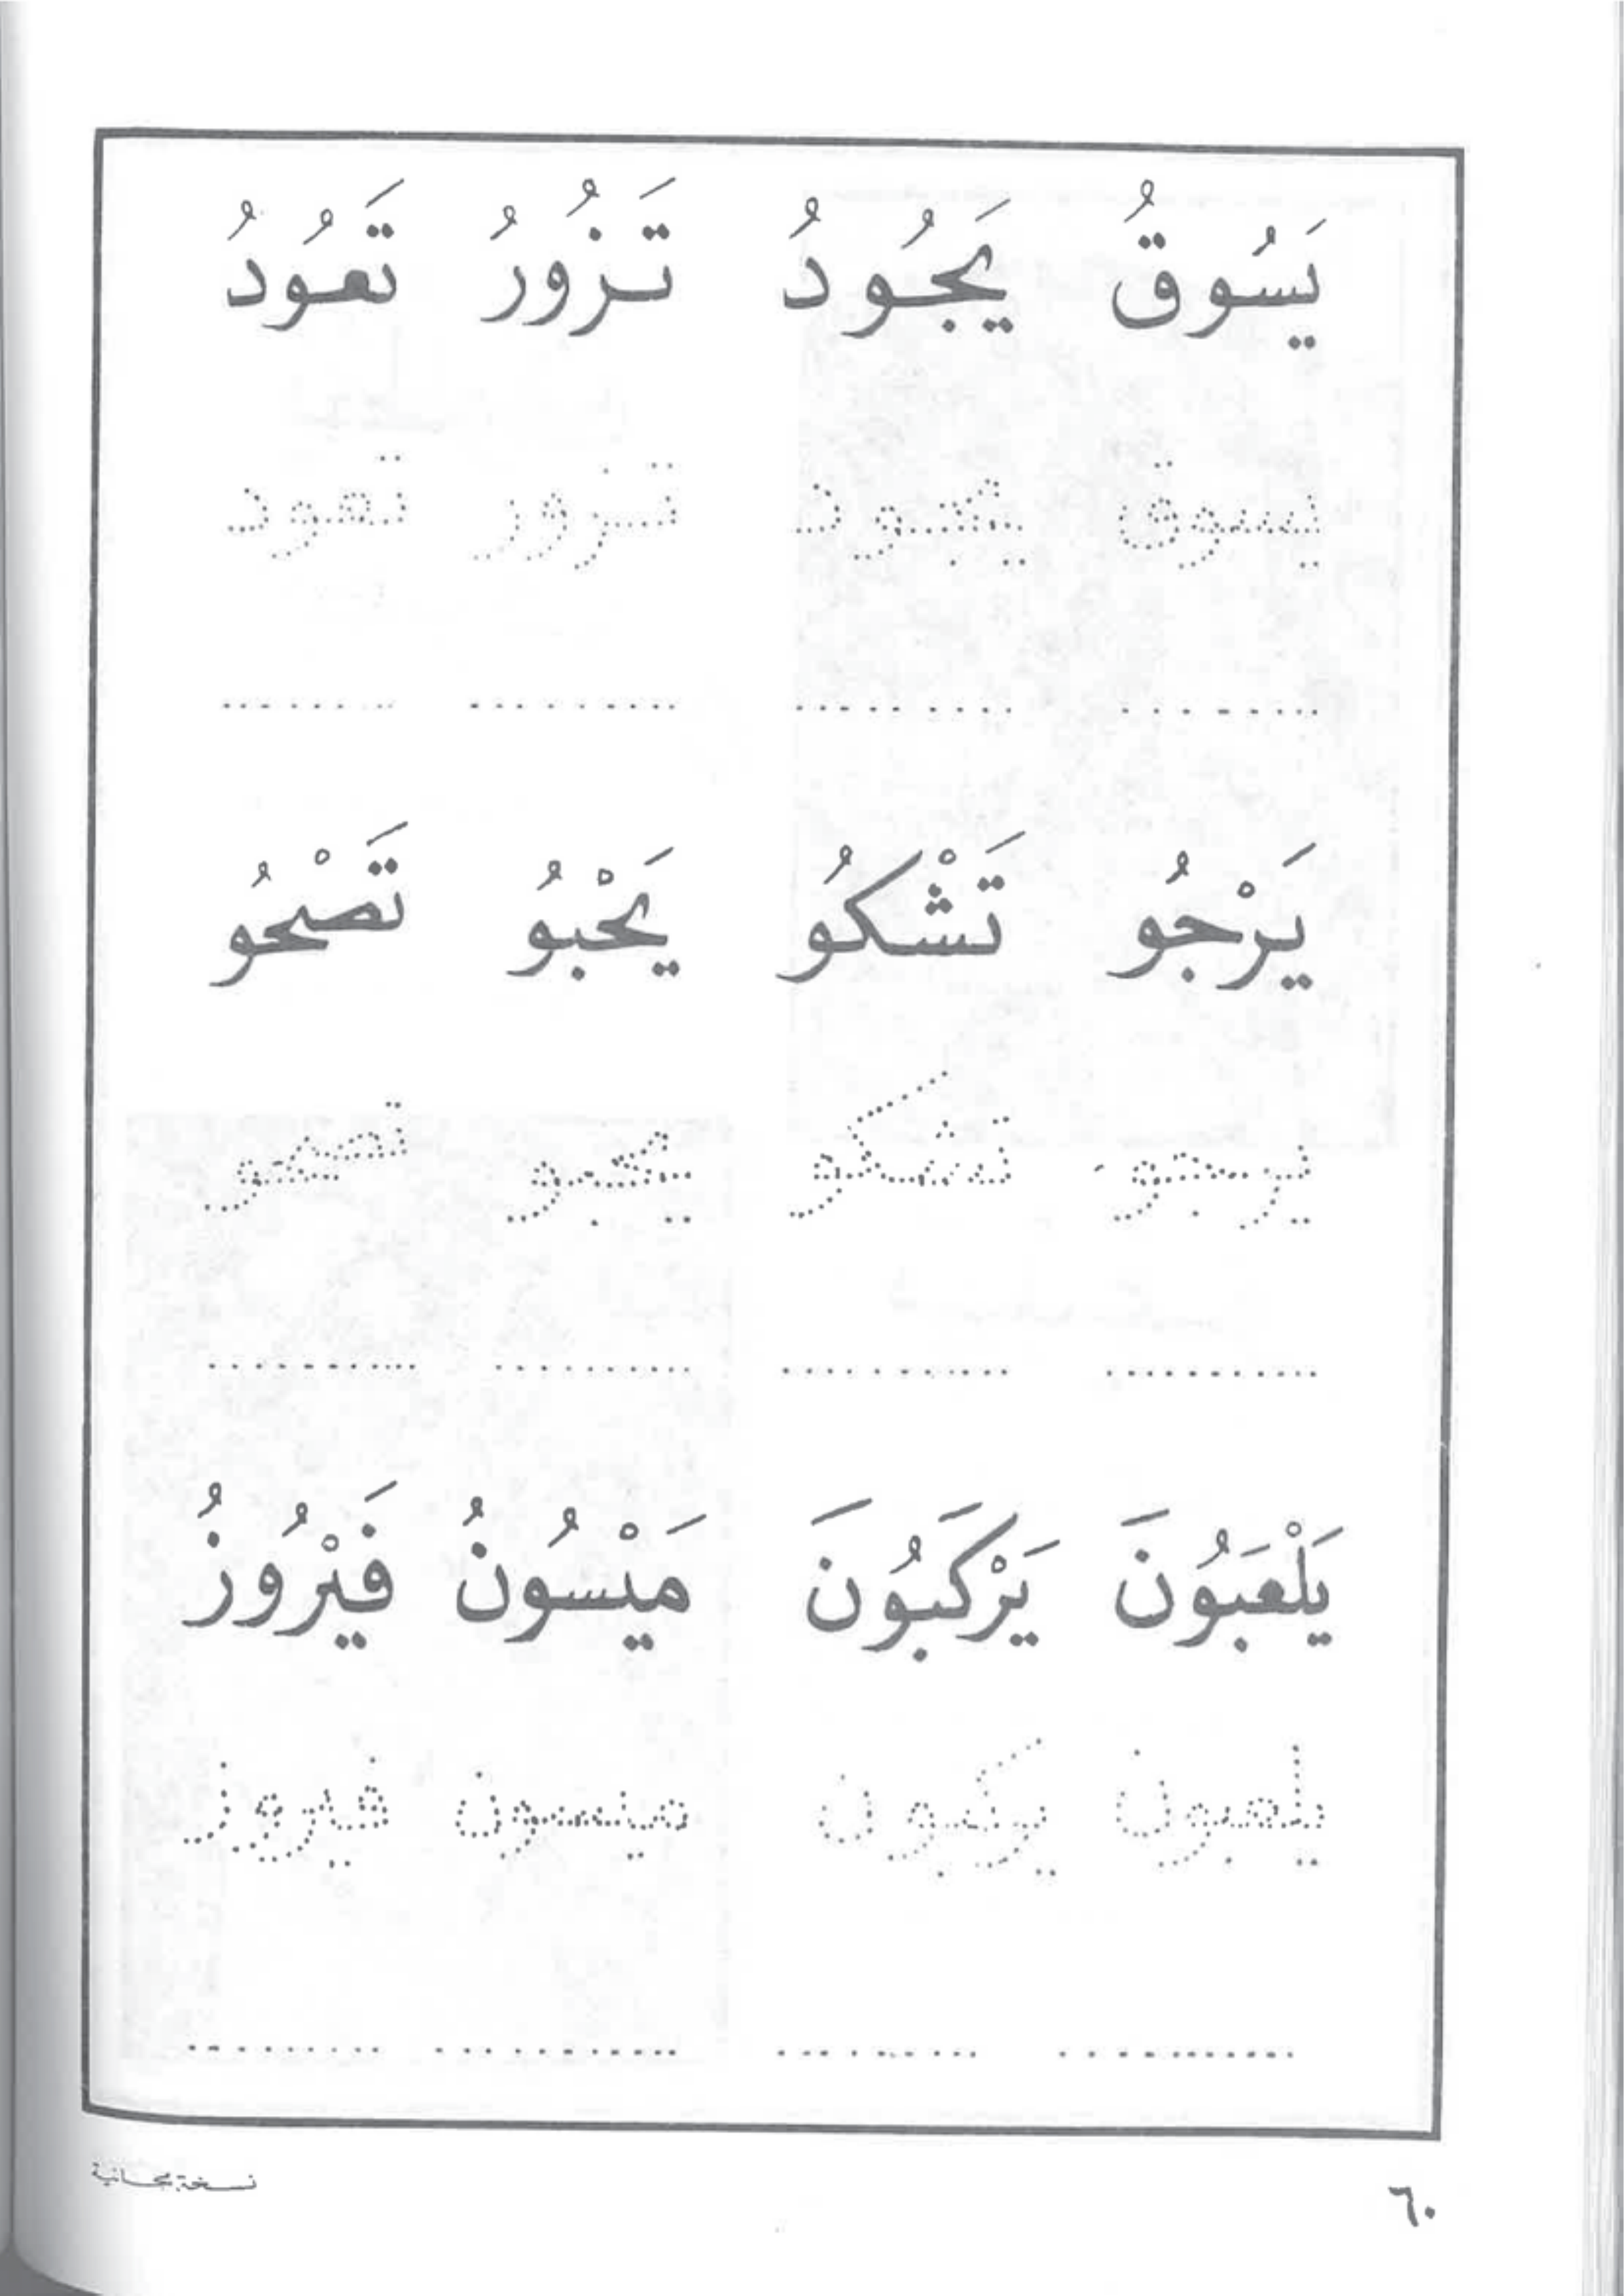 يَسُوقُ يَجُودُ تَزُورُ تَعُودُ
يسوق يجود تزور تعود
يَرْجُو تَشْكُو يَحْبُو تَصْحُو
يرجو تشكو يحبو تصحو
يَلْعَبُونَ يَرْكَبُونَ مَيْسُونُ فَيْرُوزُ
يلعبون يركبون ميسون فيروز
٦٠ نسخة مجانية